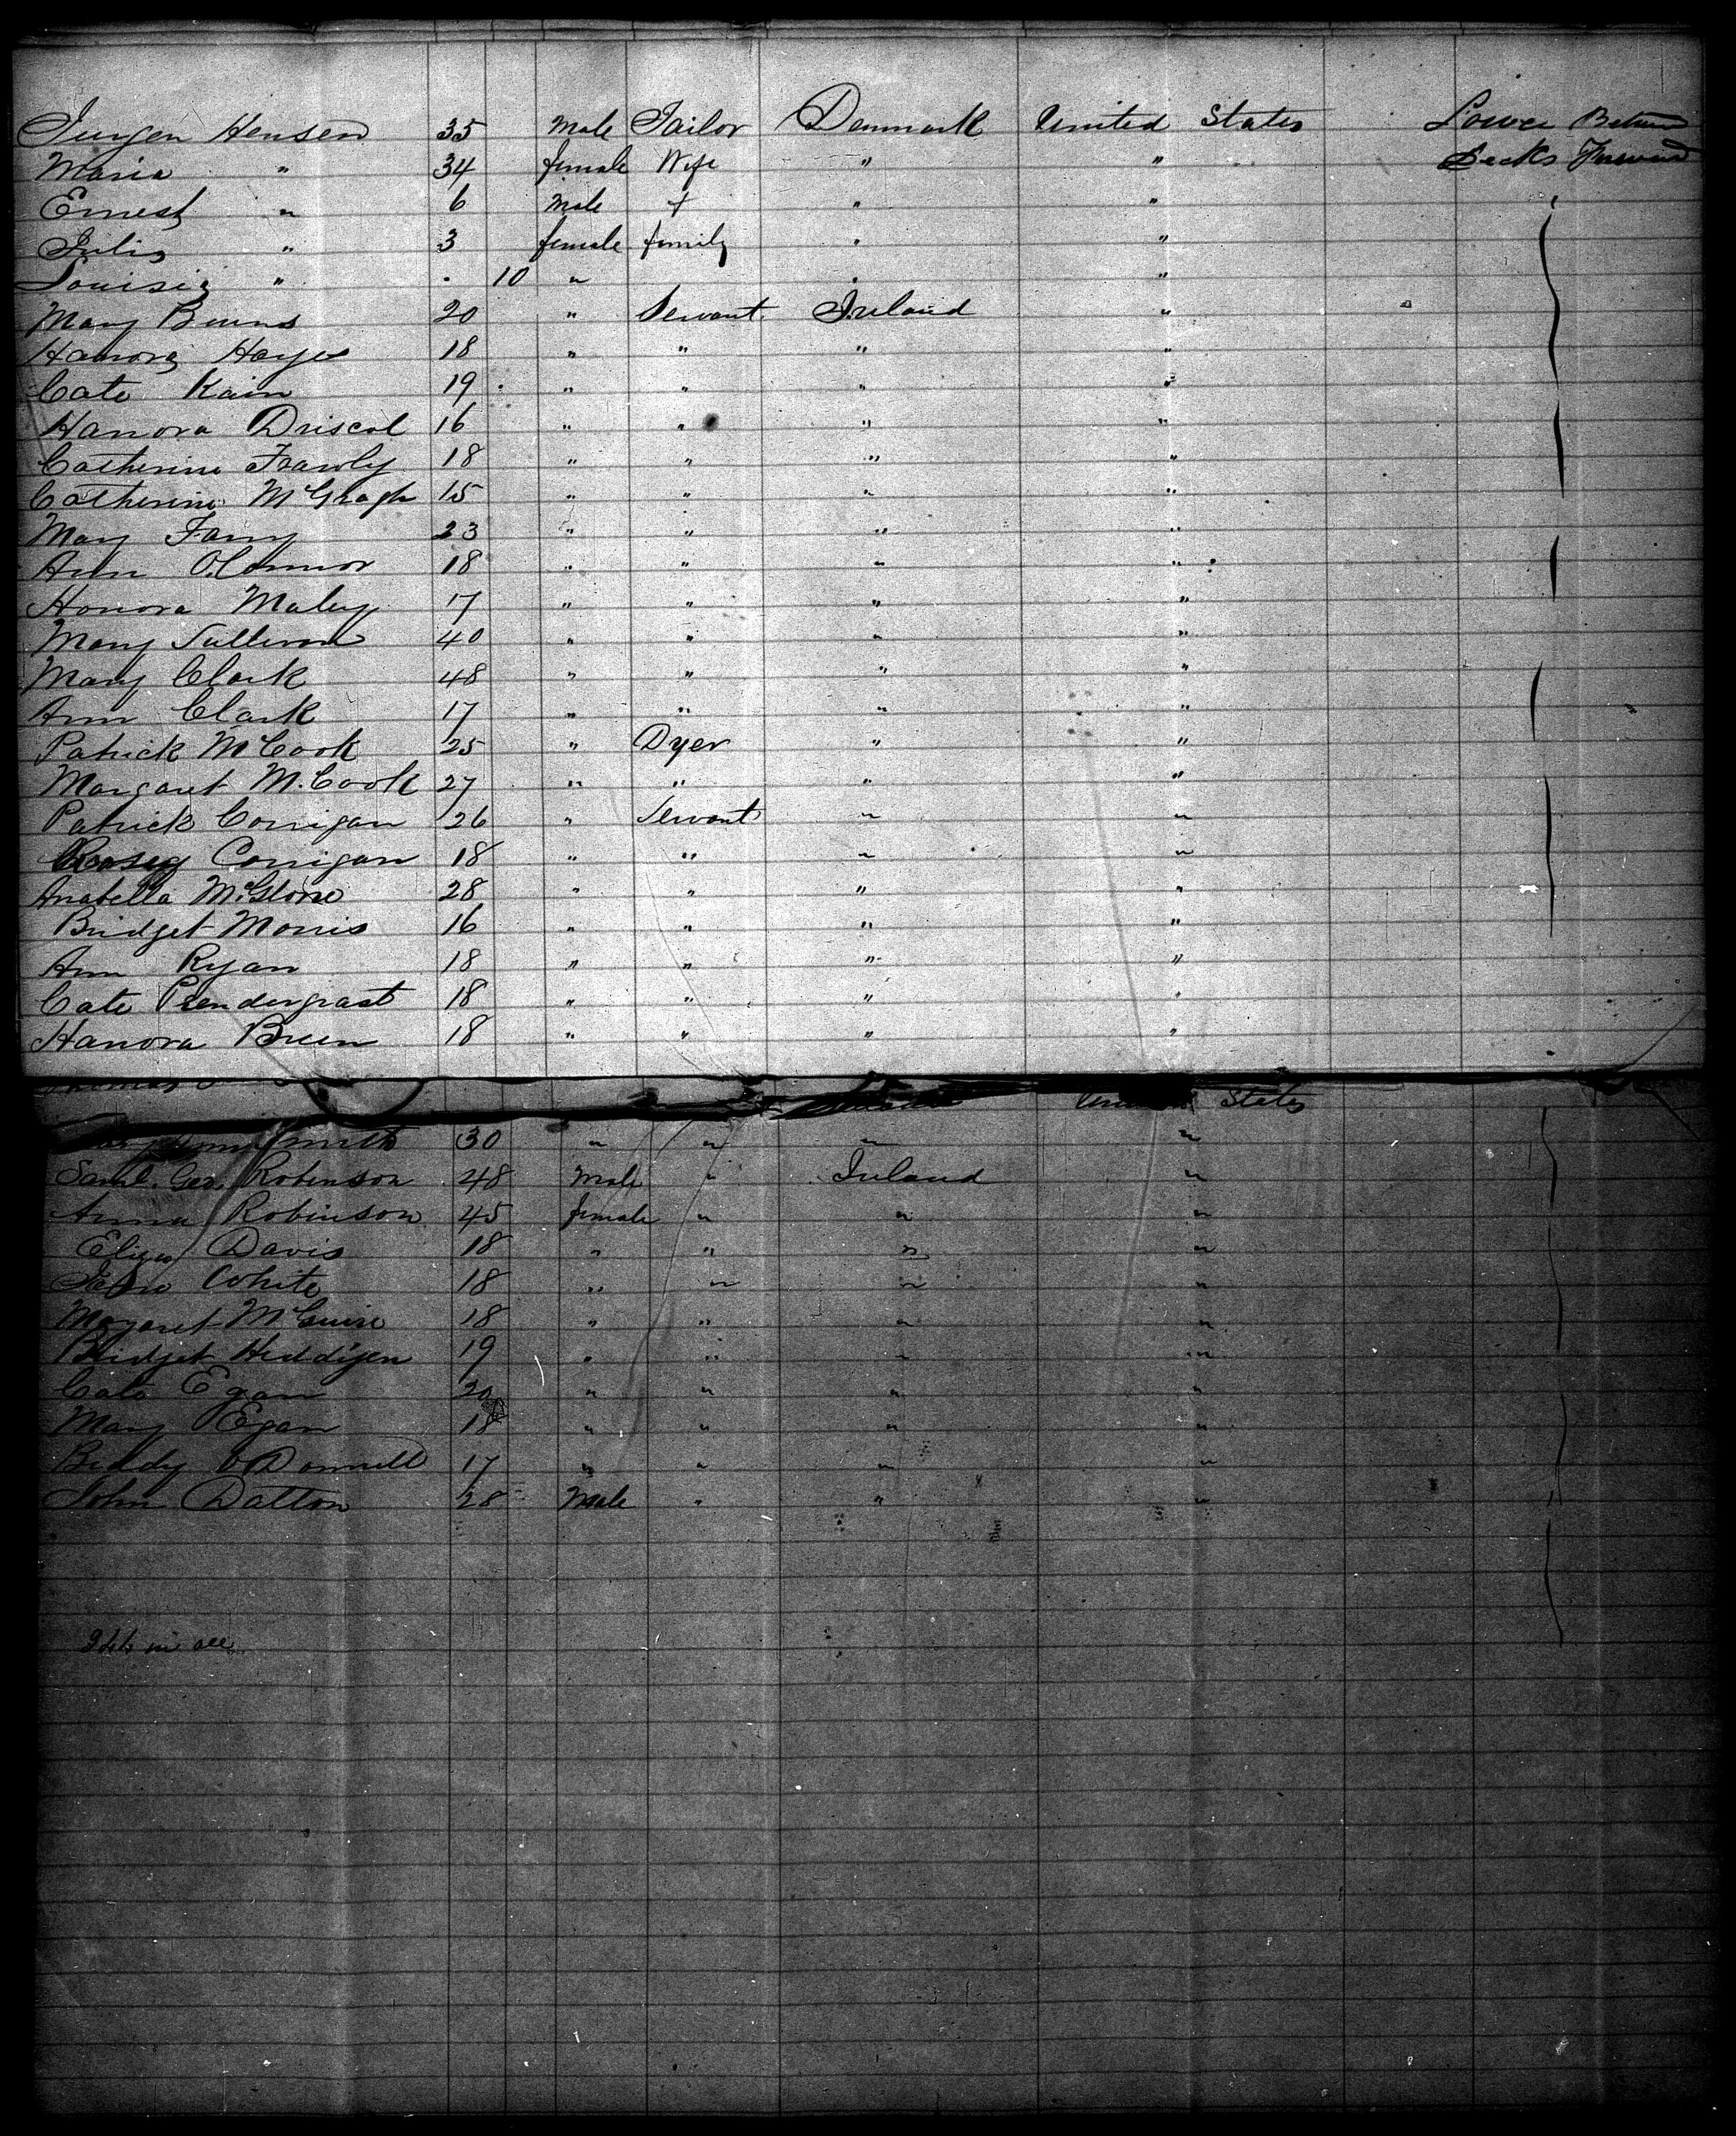 Jurgen Hensen 35 Male Tailor Denmark United States Lower Between
Maria " 34 female Wife " " Decks Forward
Ernest " 6 Male + " "
Julia " 3 female family " "
Louisia " . 10 " . "
Mary Burns 20 " Servant Ireland "
Hanora Hayes 18 " " " "
Cate Kain 19 " " " "
Hanora Driscol 16 " " " "
Catherine Frawly 18 " " " "
Catherine McGragh 15 " " " "
Mary Fany 23 " " " "
Ann O.Connor 18 " " " "
Honora Maley 17 " " " "
Mary Sullivan 40 " " " "
Mary Clark 48 " " " "
Ann Clark 17 " " " "
Patrick McCook 25 " Dyer " "
Margaret M.Cook 27 " " " "
Patrick Corrigan 26 " Servant " "
Corrigan 18 " " " "
Anabella McGlone 28 " " " "
Bridget Morris 16 " " " "
Ann Ryan 18 " " " "
Cate Prendergrast 18 " " " "
Hanora Breen 18 " " " "
Thomas States
Smith 30 " " " "
Saml. Geo. Robinson 48 Male " Ireland "
Anna Robinson 45 female " " "
Eliza Davis 18 " " " "
Jane White 18 " " " "
Margaret McGuire 18 " " " "
Bridget Heddigen 19 " " " "
Cate Egan 20 " " " "
Mary Egan 18 " " " "
Biddy O'Donnell 17 " " " "
John Dalton 28 Male " " "
in all